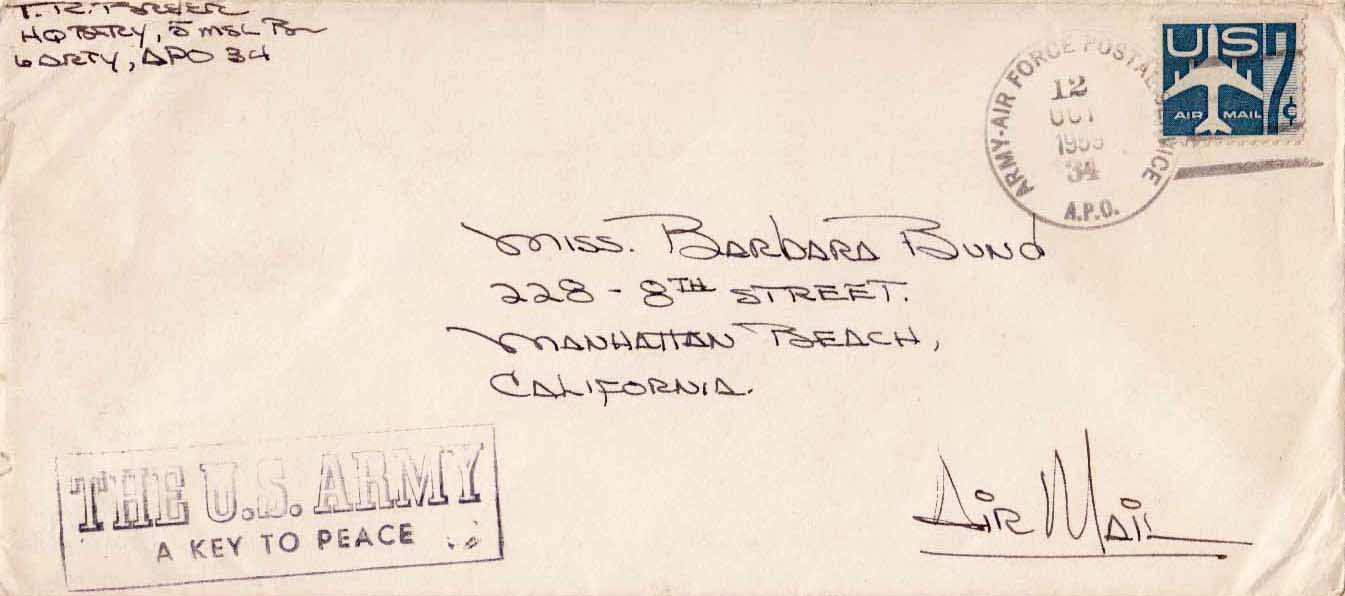 T. R.
HQ BTRY, 5 MSL Bn
6 ARTY, APO 34
ARMY-AIR FORCE POSTAL SERVICE
12
OCT
1959
34
A.P.O.
US 7¢
AIR MAIL
MISS. BARBARA BUND
228 - 8TH STREET.
MANHATTAN BEACH,
CALIFORNIA.
THE U.S. ARMY
A KEY TO PEACE
AIR MAIL